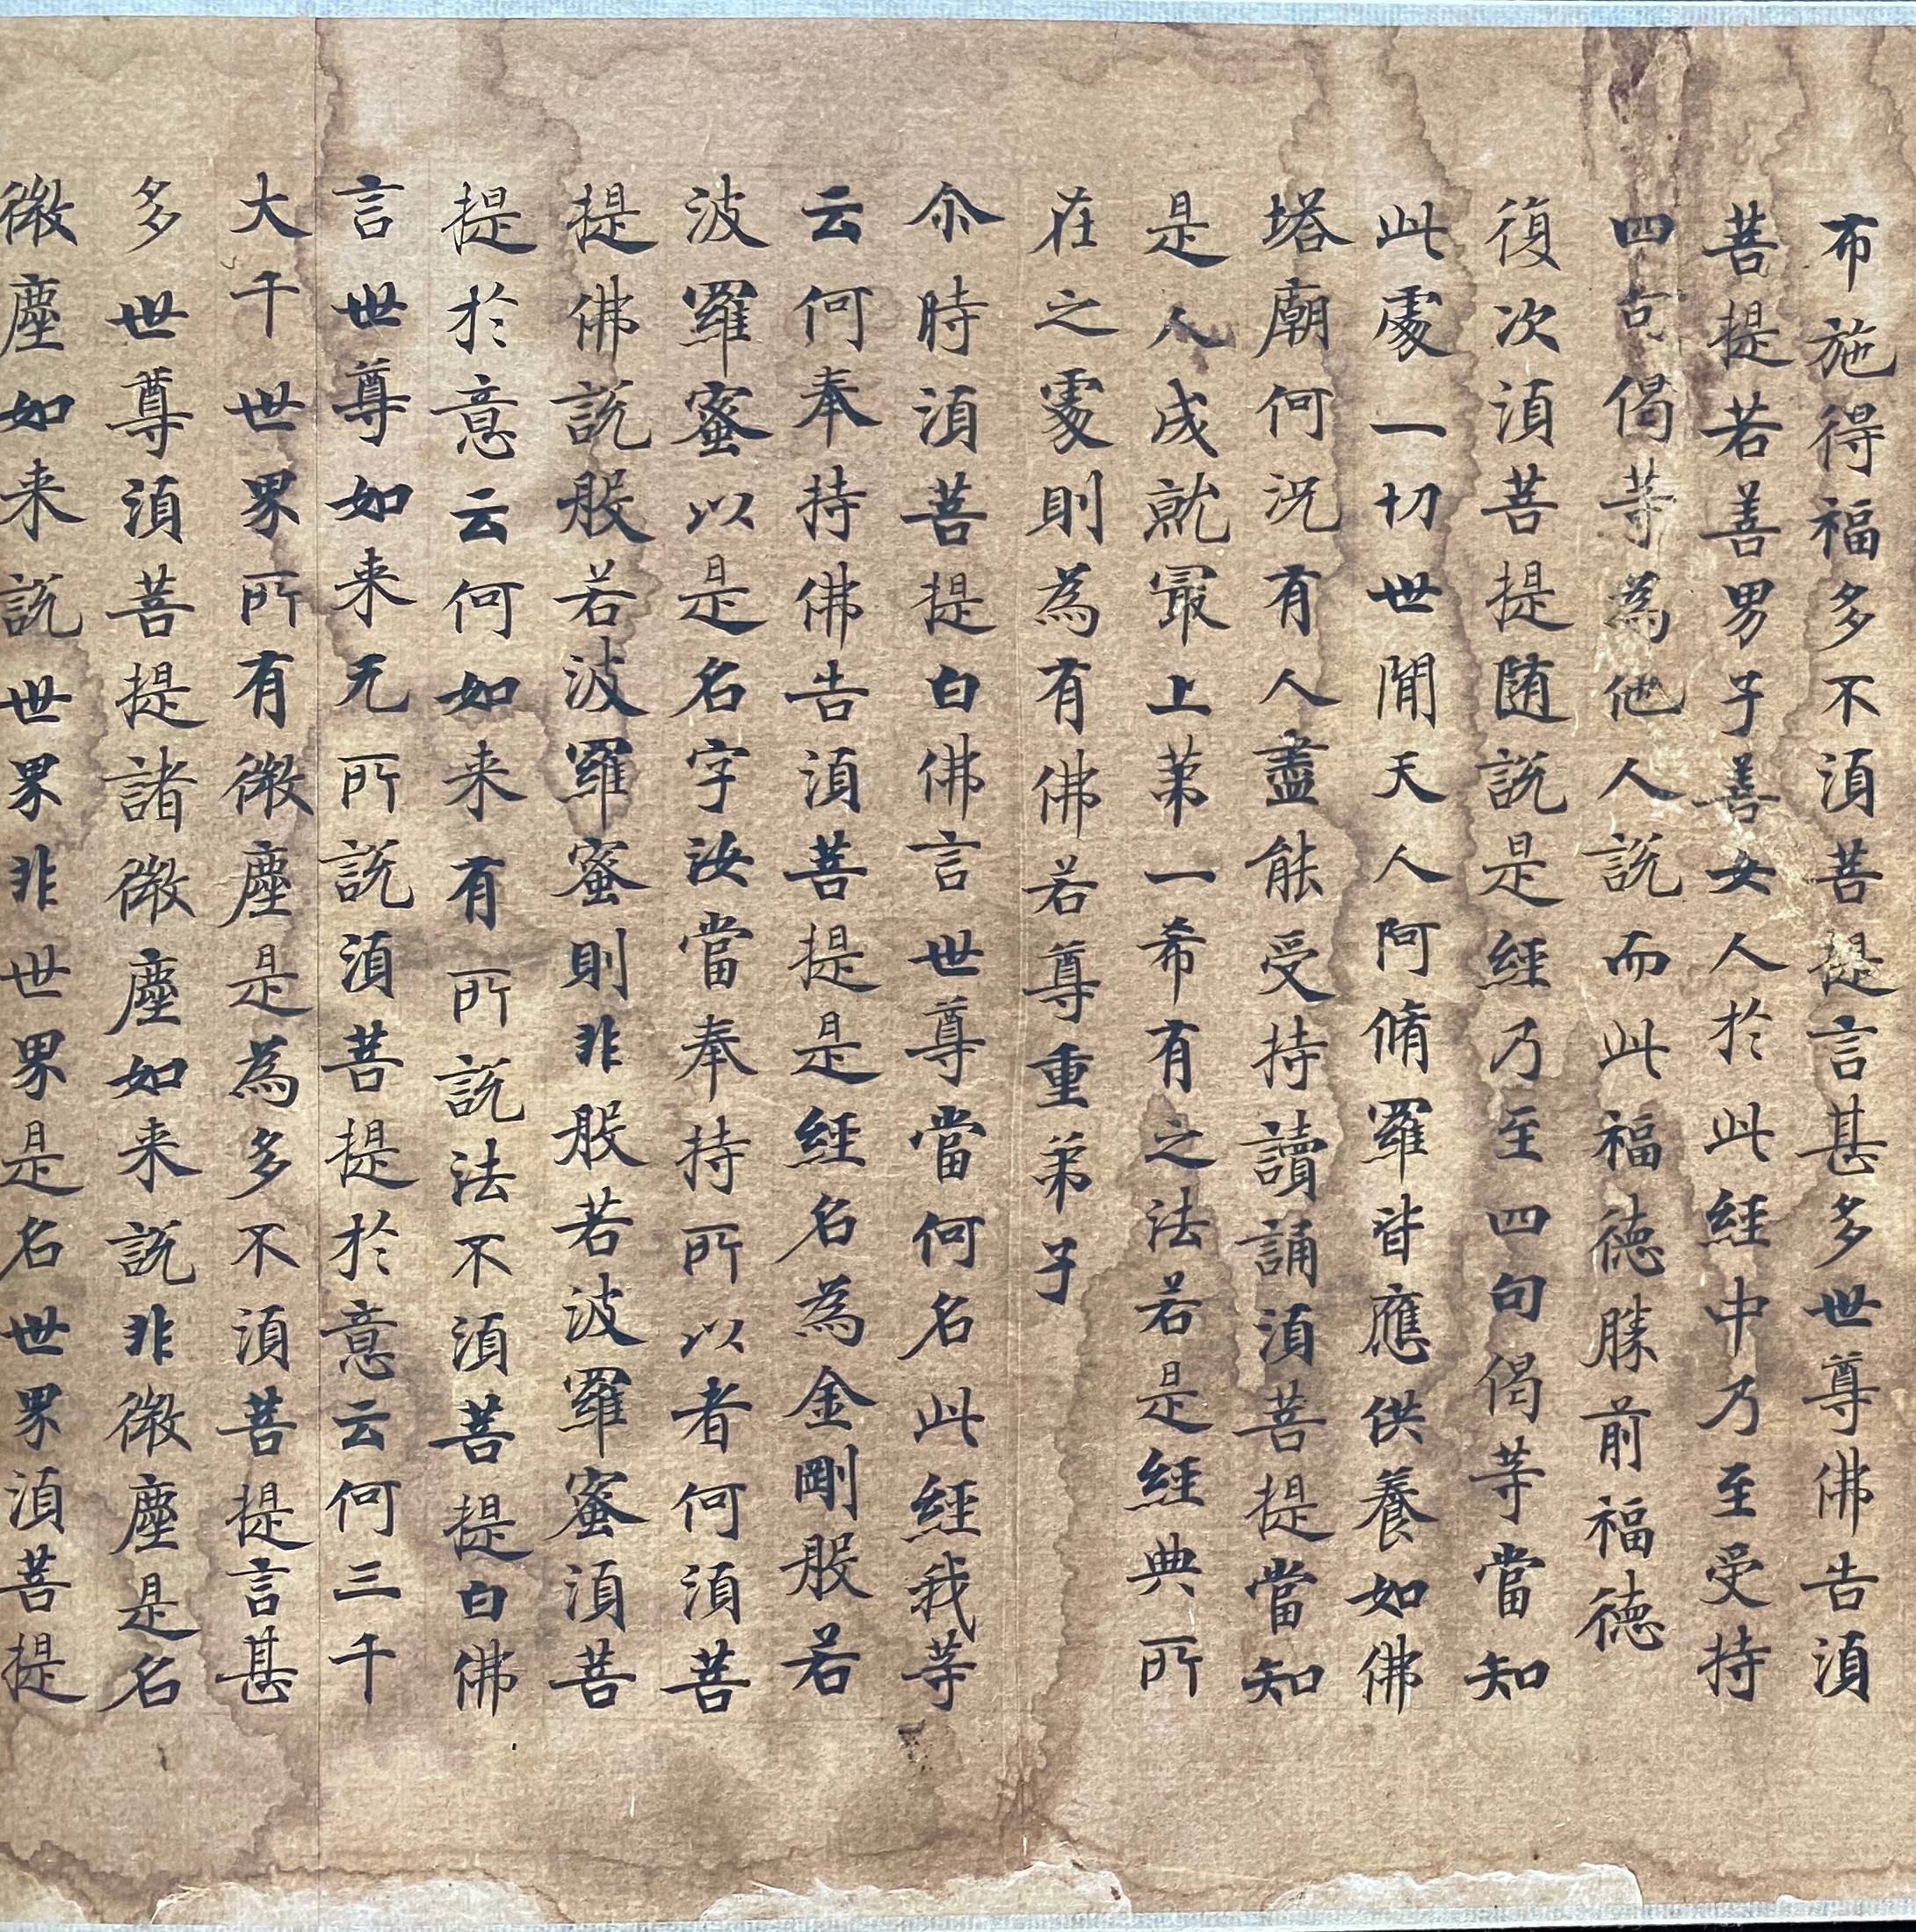 布施得福多不須菩提言甚多世尊佛告須
菩提若善男子善女人於此經中乃至受持
四句偈等為他人說而此福德勝前福德
復次須菩提随說是經乃至四句偈等當知
此處一切世閒天人阿脩羅皆應供養如佛
塔廟何況有人盡能受持讀誦須菩提當知
是人成就冣上苐一希有之法若是經典所
在之處則為有佛若尊重弟子
尒時須菩提白佛言世尊當何名此經我等
云何奉持佛告須菩提是經名為金剛般若
波羅蜜以是名字汝當奉持所以者何須菩
提佛說般若波羅蜜則非般若波羅蜜須菩
提於意云何如来有所說法不須菩提白佛
言世尊如来无所說須菩提於意云何三千
大千世界所有微塵是為多不須菩提言甚
多世尊須菩提諸微塵如来說非微塵是名
微塵如来說世界非世界是名世界須菩提